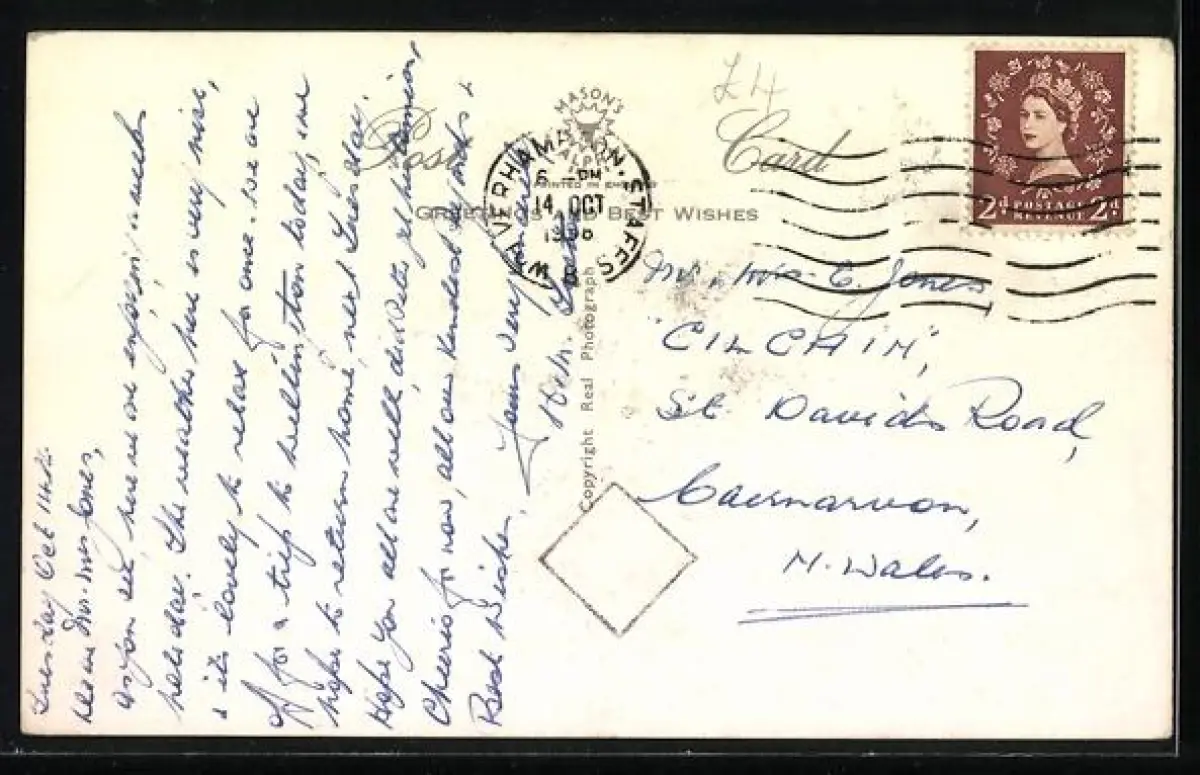 £4
Post Card
MASON'S
ALPHA
PRINTED IN
GREETINGS AND BEST WISHES
WOLVERHAMPTON · STAFFS
6 - PM
14 OCT
2D POSTAGE 2D
REVENUE
Copyright Real Photograph
Tuesday Oct 14th
Dear Mr. Mrs Jones,
As you see, here we are enjoying a weeks
holiday. The weather here is very nice,
& its lovely to relax for once. We are
off for a trip to Wellington today, we
hope to return home, next Tuesday.
Hope you all are well,
Cheerio for now, all our kindest regards &
Best Wishes,
Yours very sincerely
Mr. Mrs. E. Jones
"CILCAIN",
St. Davids Road,
Caernarvon,
N. Wales.